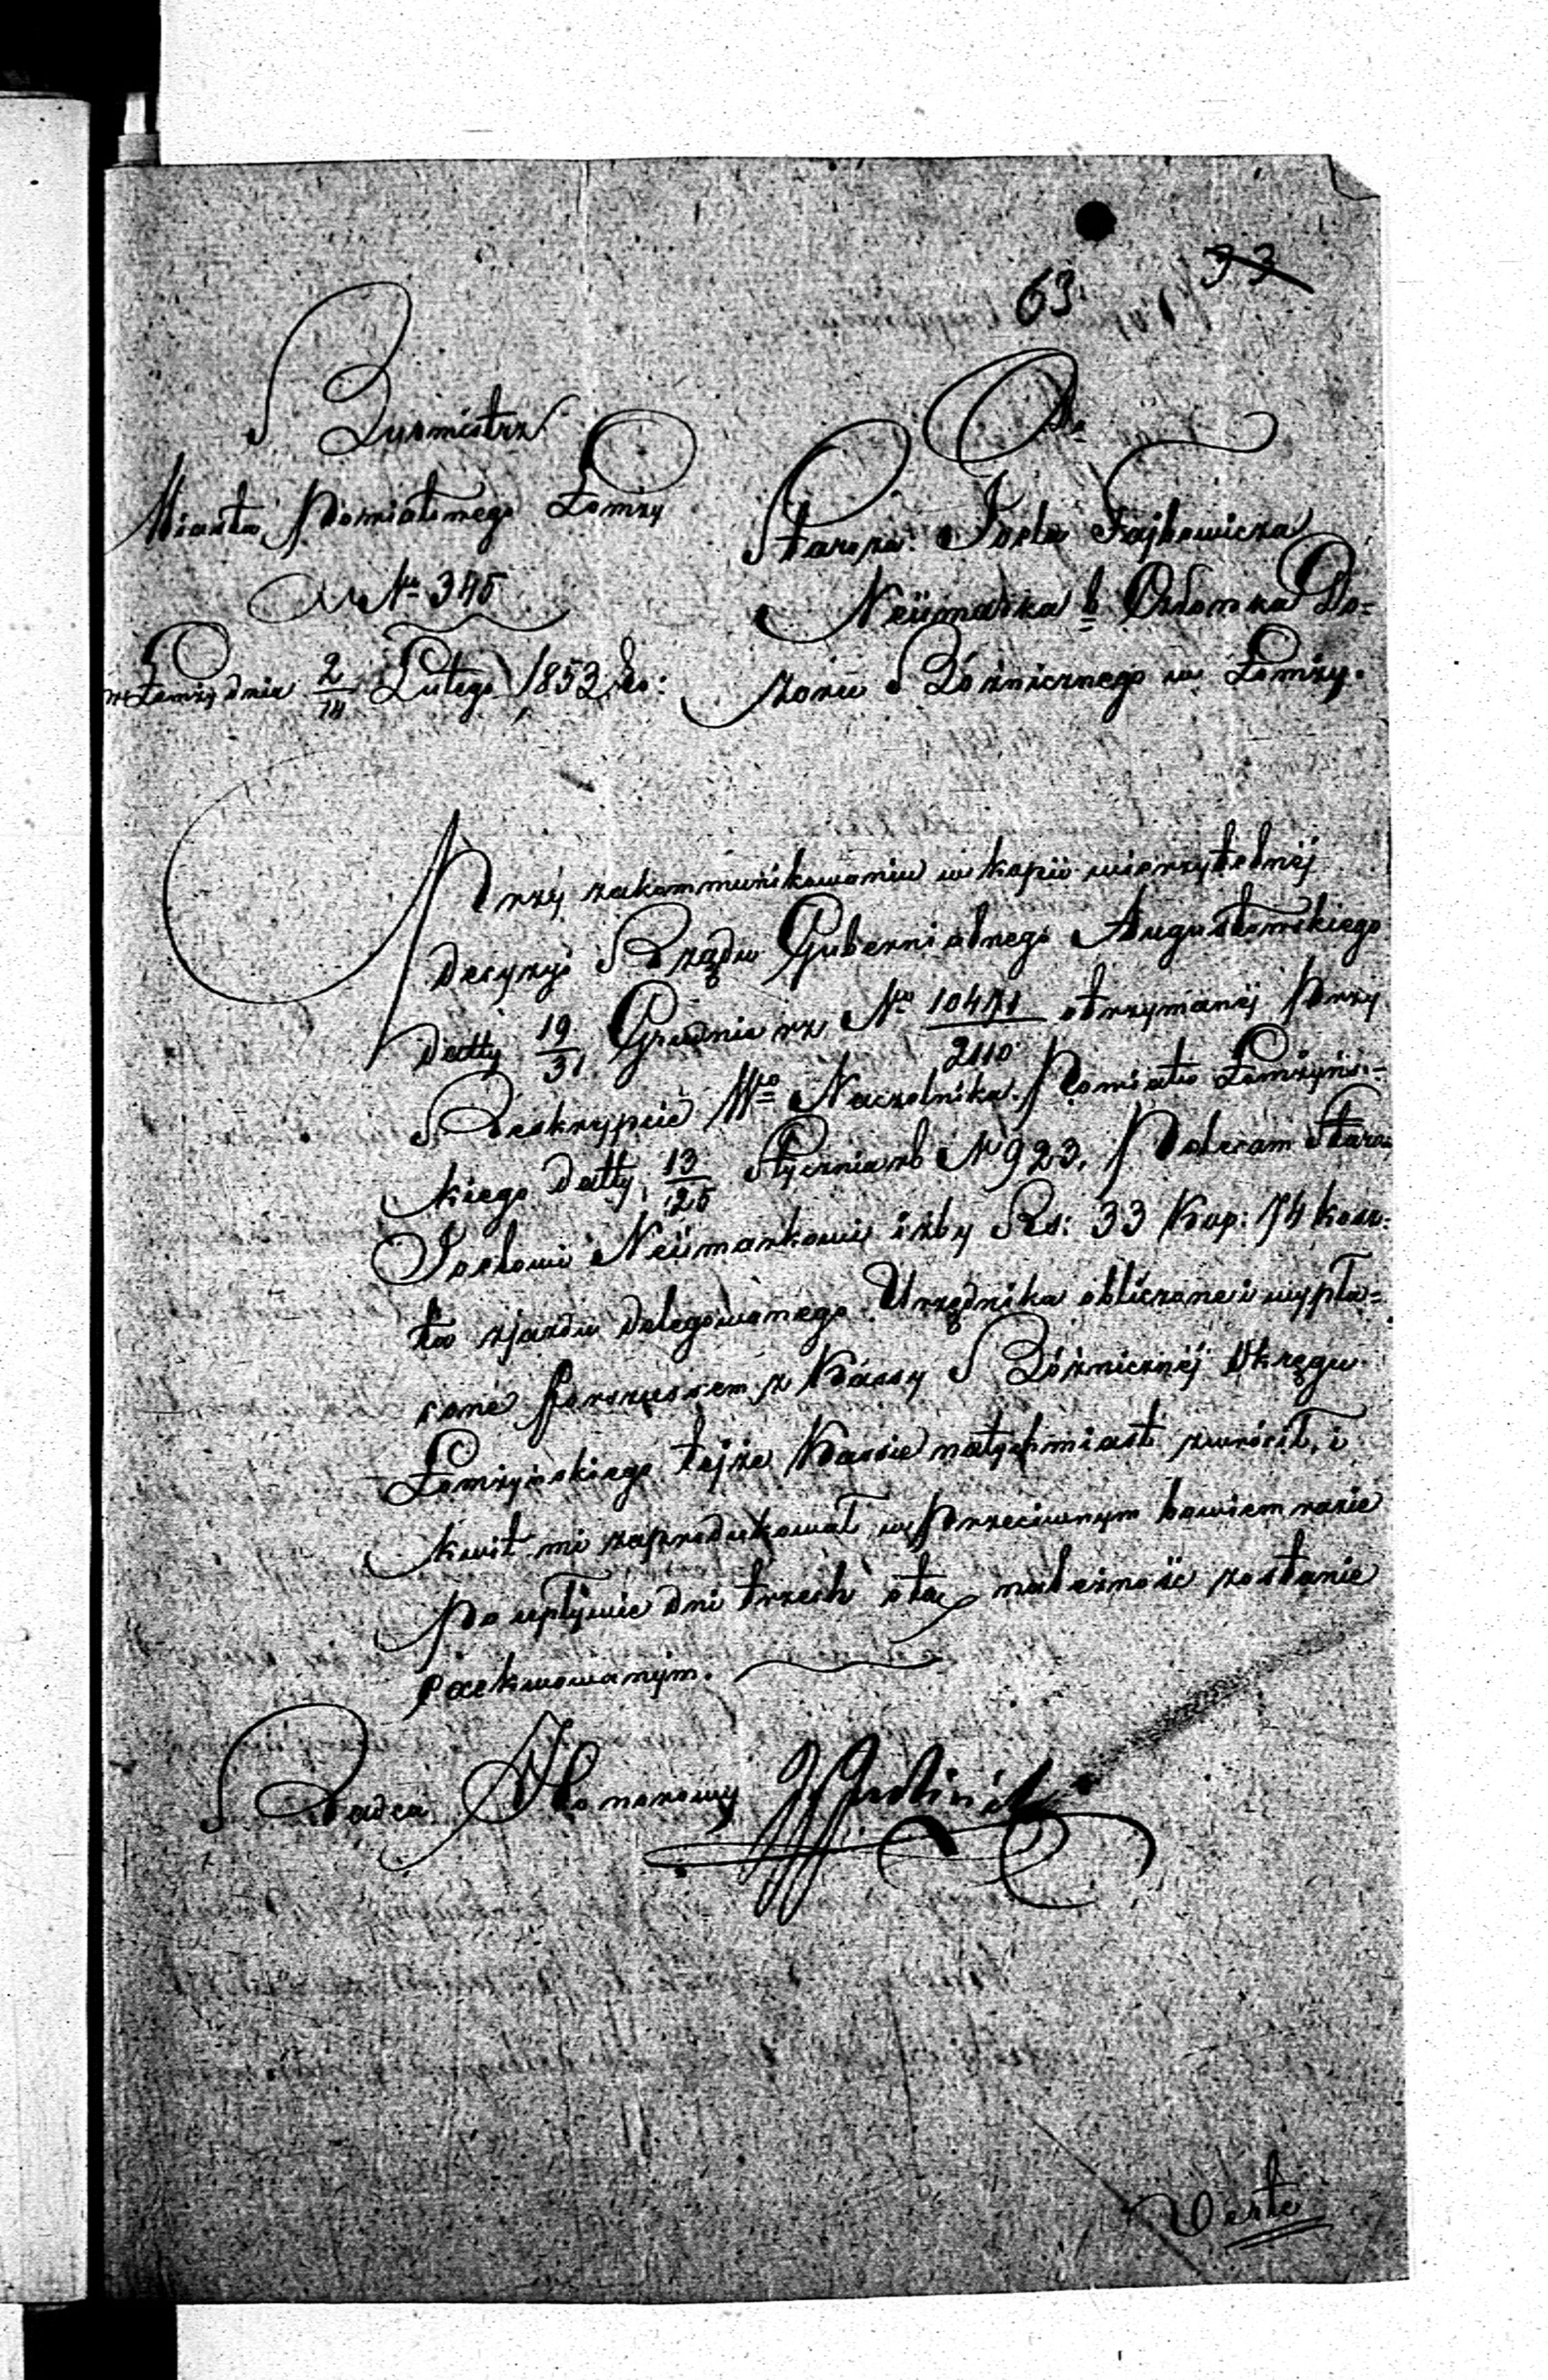 63 33
Burmistrz
Miasta Powiatowego Łomży
No 345
w Łomży dnia 2/14 Lutego 1853 ro:
Do
Staroza: Joela Fajbowicza
Neümarka b. Członka Do=
zoru Bóźnicznego w Łomży.
Przy zakommunikowaniu w kopii wierzytelnéj
decyzyi Rządu Gubernialnego Augustowskiego
datty 19/31 Grudnia rz No 10471/2110 otrzymanéj przy
Reskrypcie Wo Naczelnika Powiatu Łomżyńs=
kiego datty 13/25 Stycznia rb N 923, Polecam Staroz
Joelowi Neümarkowi iżby Rs: 33 Kop: 74 kosz=
ta zjazdu delegowanego Urzędnika obliczone i wypła=
cone forszussem z Kassy Bóźnicznéj Okręgu
Łomżyńskiego tejże Kassie natychmiast zwrócił, i
kwit mi zaprodukował w przeciwnym bowiem razie
po upływie dni trzech należność zostanie
exekwowanym.
Radca Honorowy
Verte